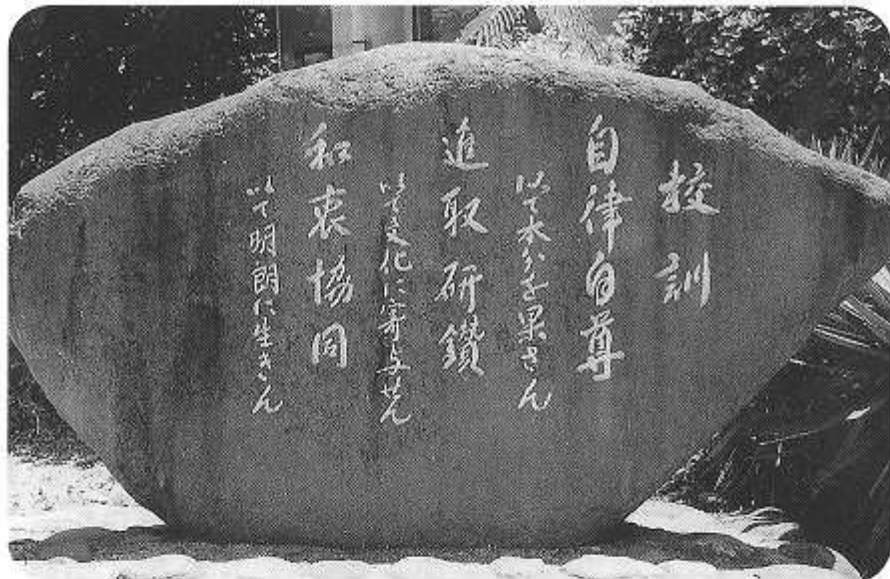 校訓
自律自尊
以て本分を果さん
進取研鑽
以て文化に寄与せん
和衷協同
以て明朗に生きん